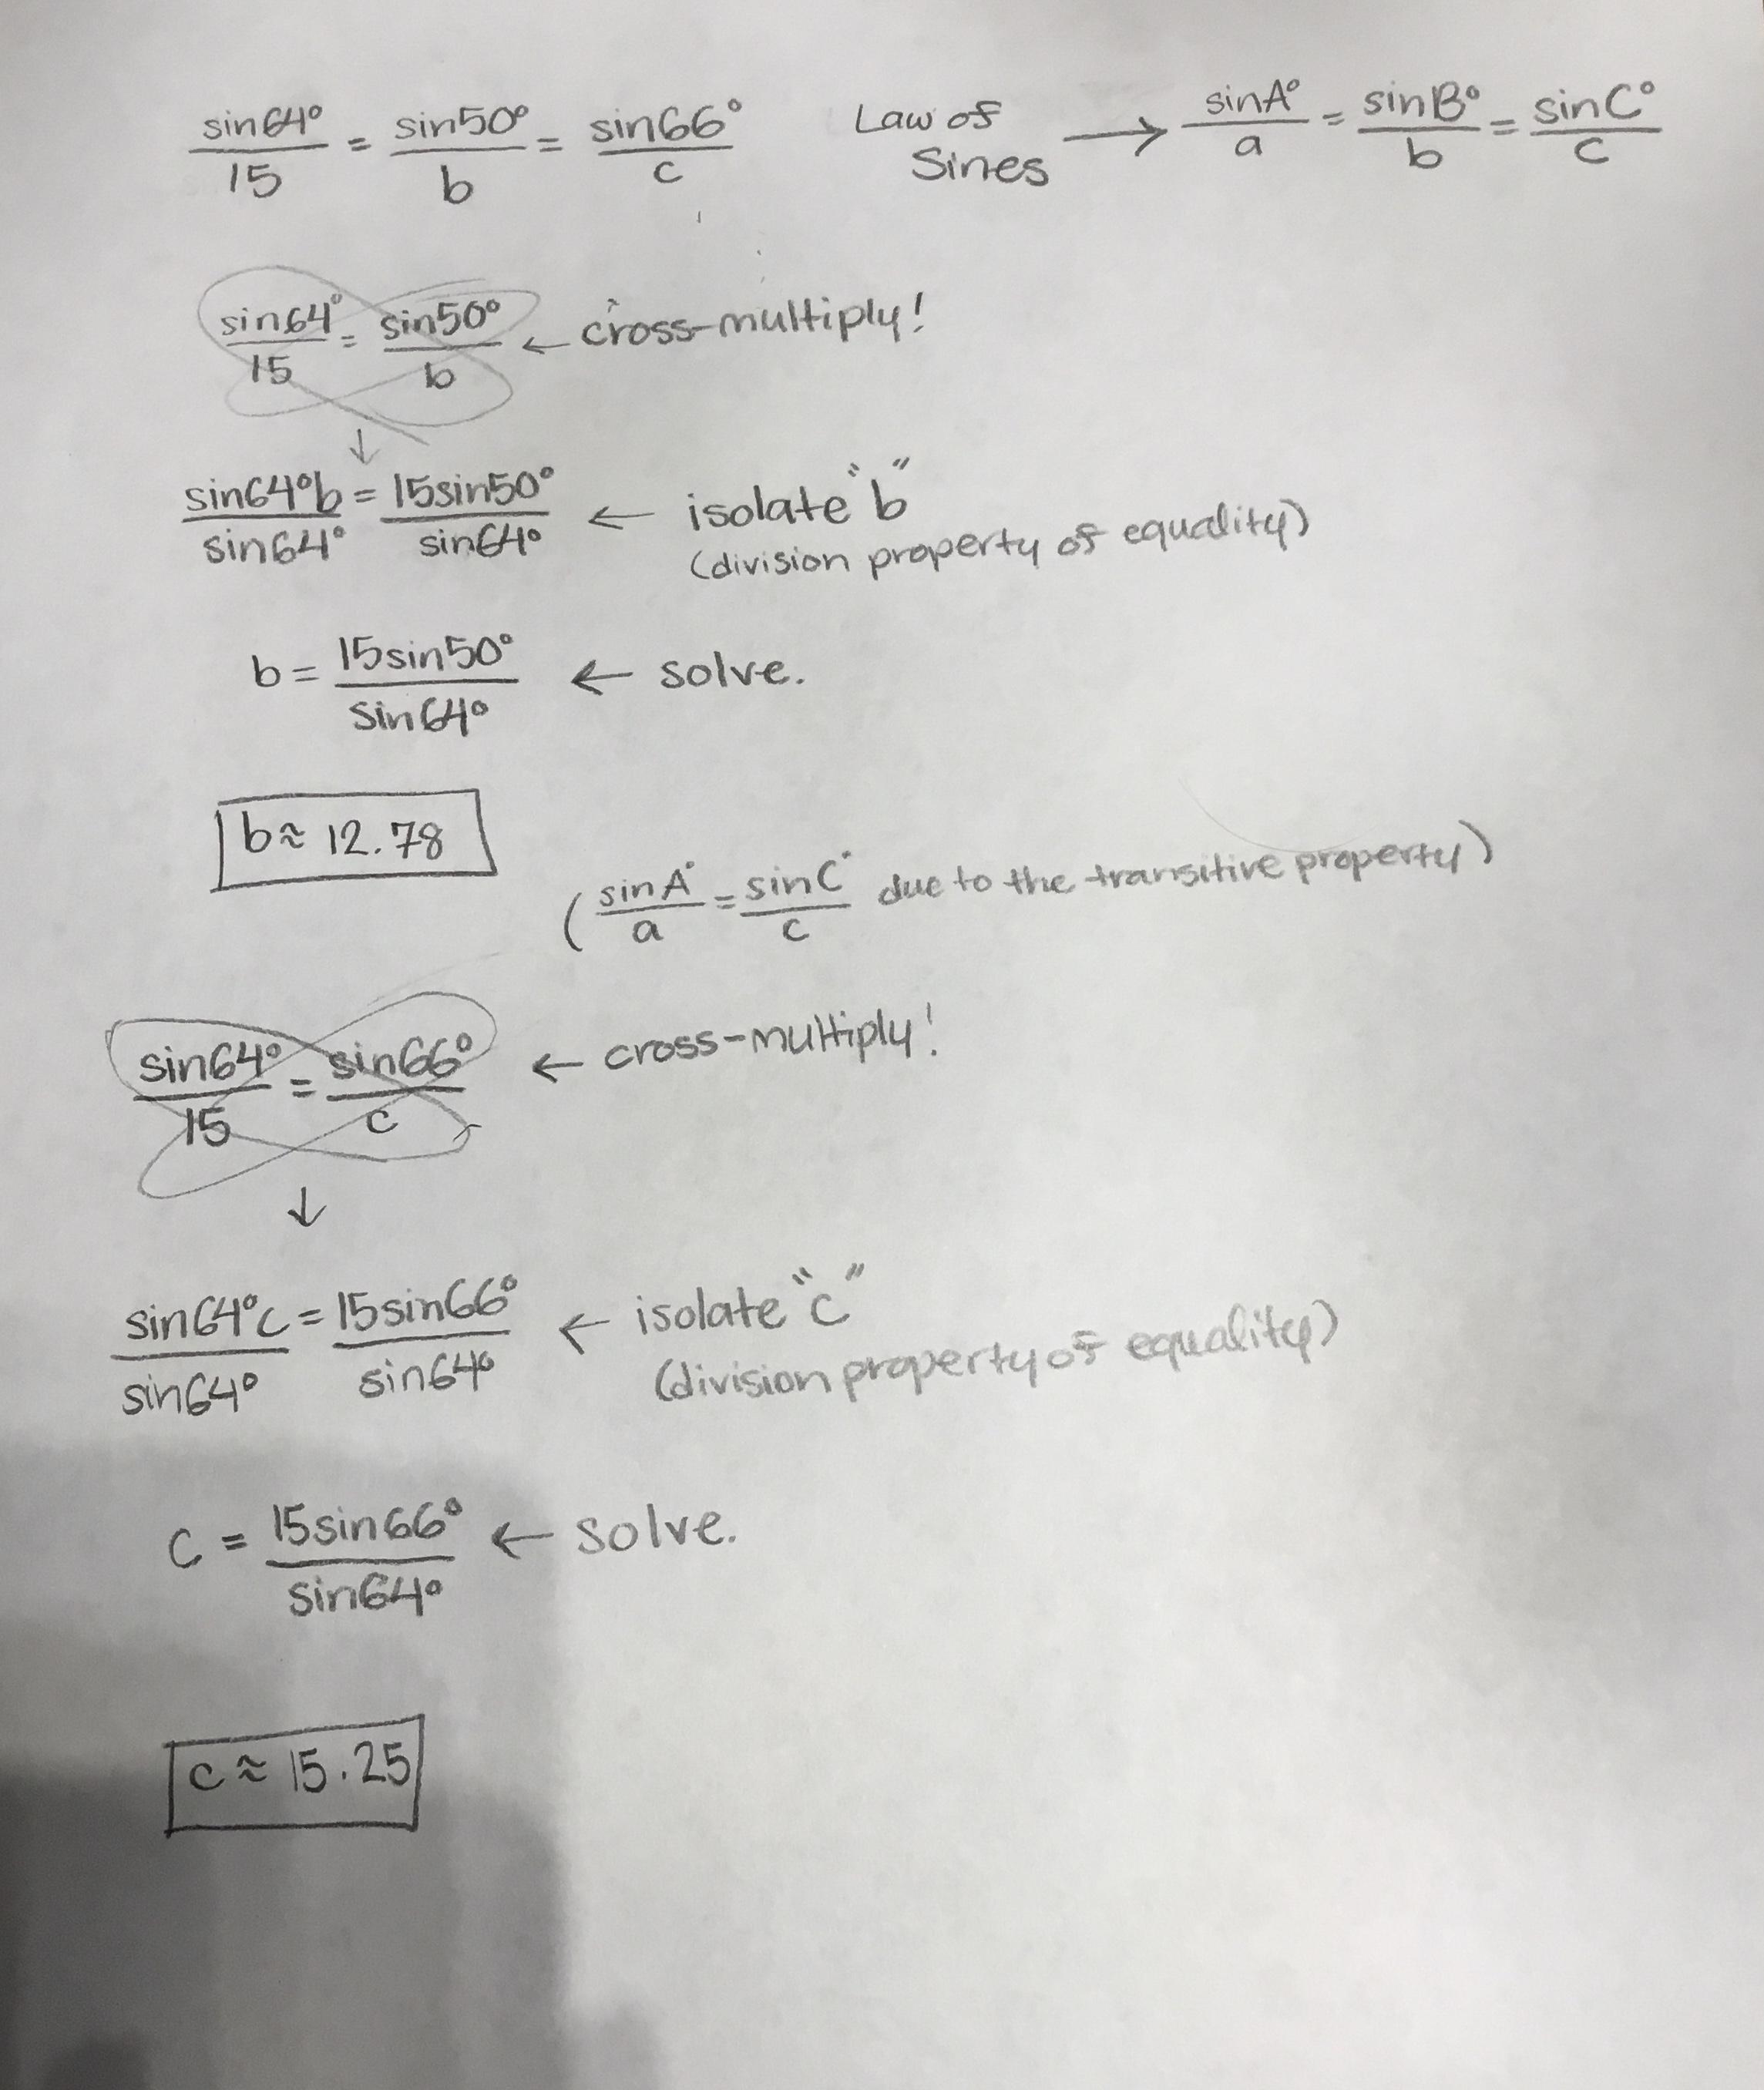 sin64°/15 = sin50°/b = sin66°/c   Law of Sines → sinA°/a = sinB°/b = sinC°/c
sin64°/15 = sin50°/b ← cross-multiply!
↓
sin64°b/sin64° = 15sin50°/sin64° ← isolate "b"
(division property of equality)
b = 15sin50°/sin64° ← solve.
b ≈ 12.78
(sinA°/a = sinC°/c due to the transitive property)
sin64°/15 = sin66°/c ← cross-multiply!
↓
sin64°c/sin64° = 15sin66°/sin64° ← isolate "c"
(division property of equality)
c = 15sin66°/sin64° ← solve.
c ≈ 15.25